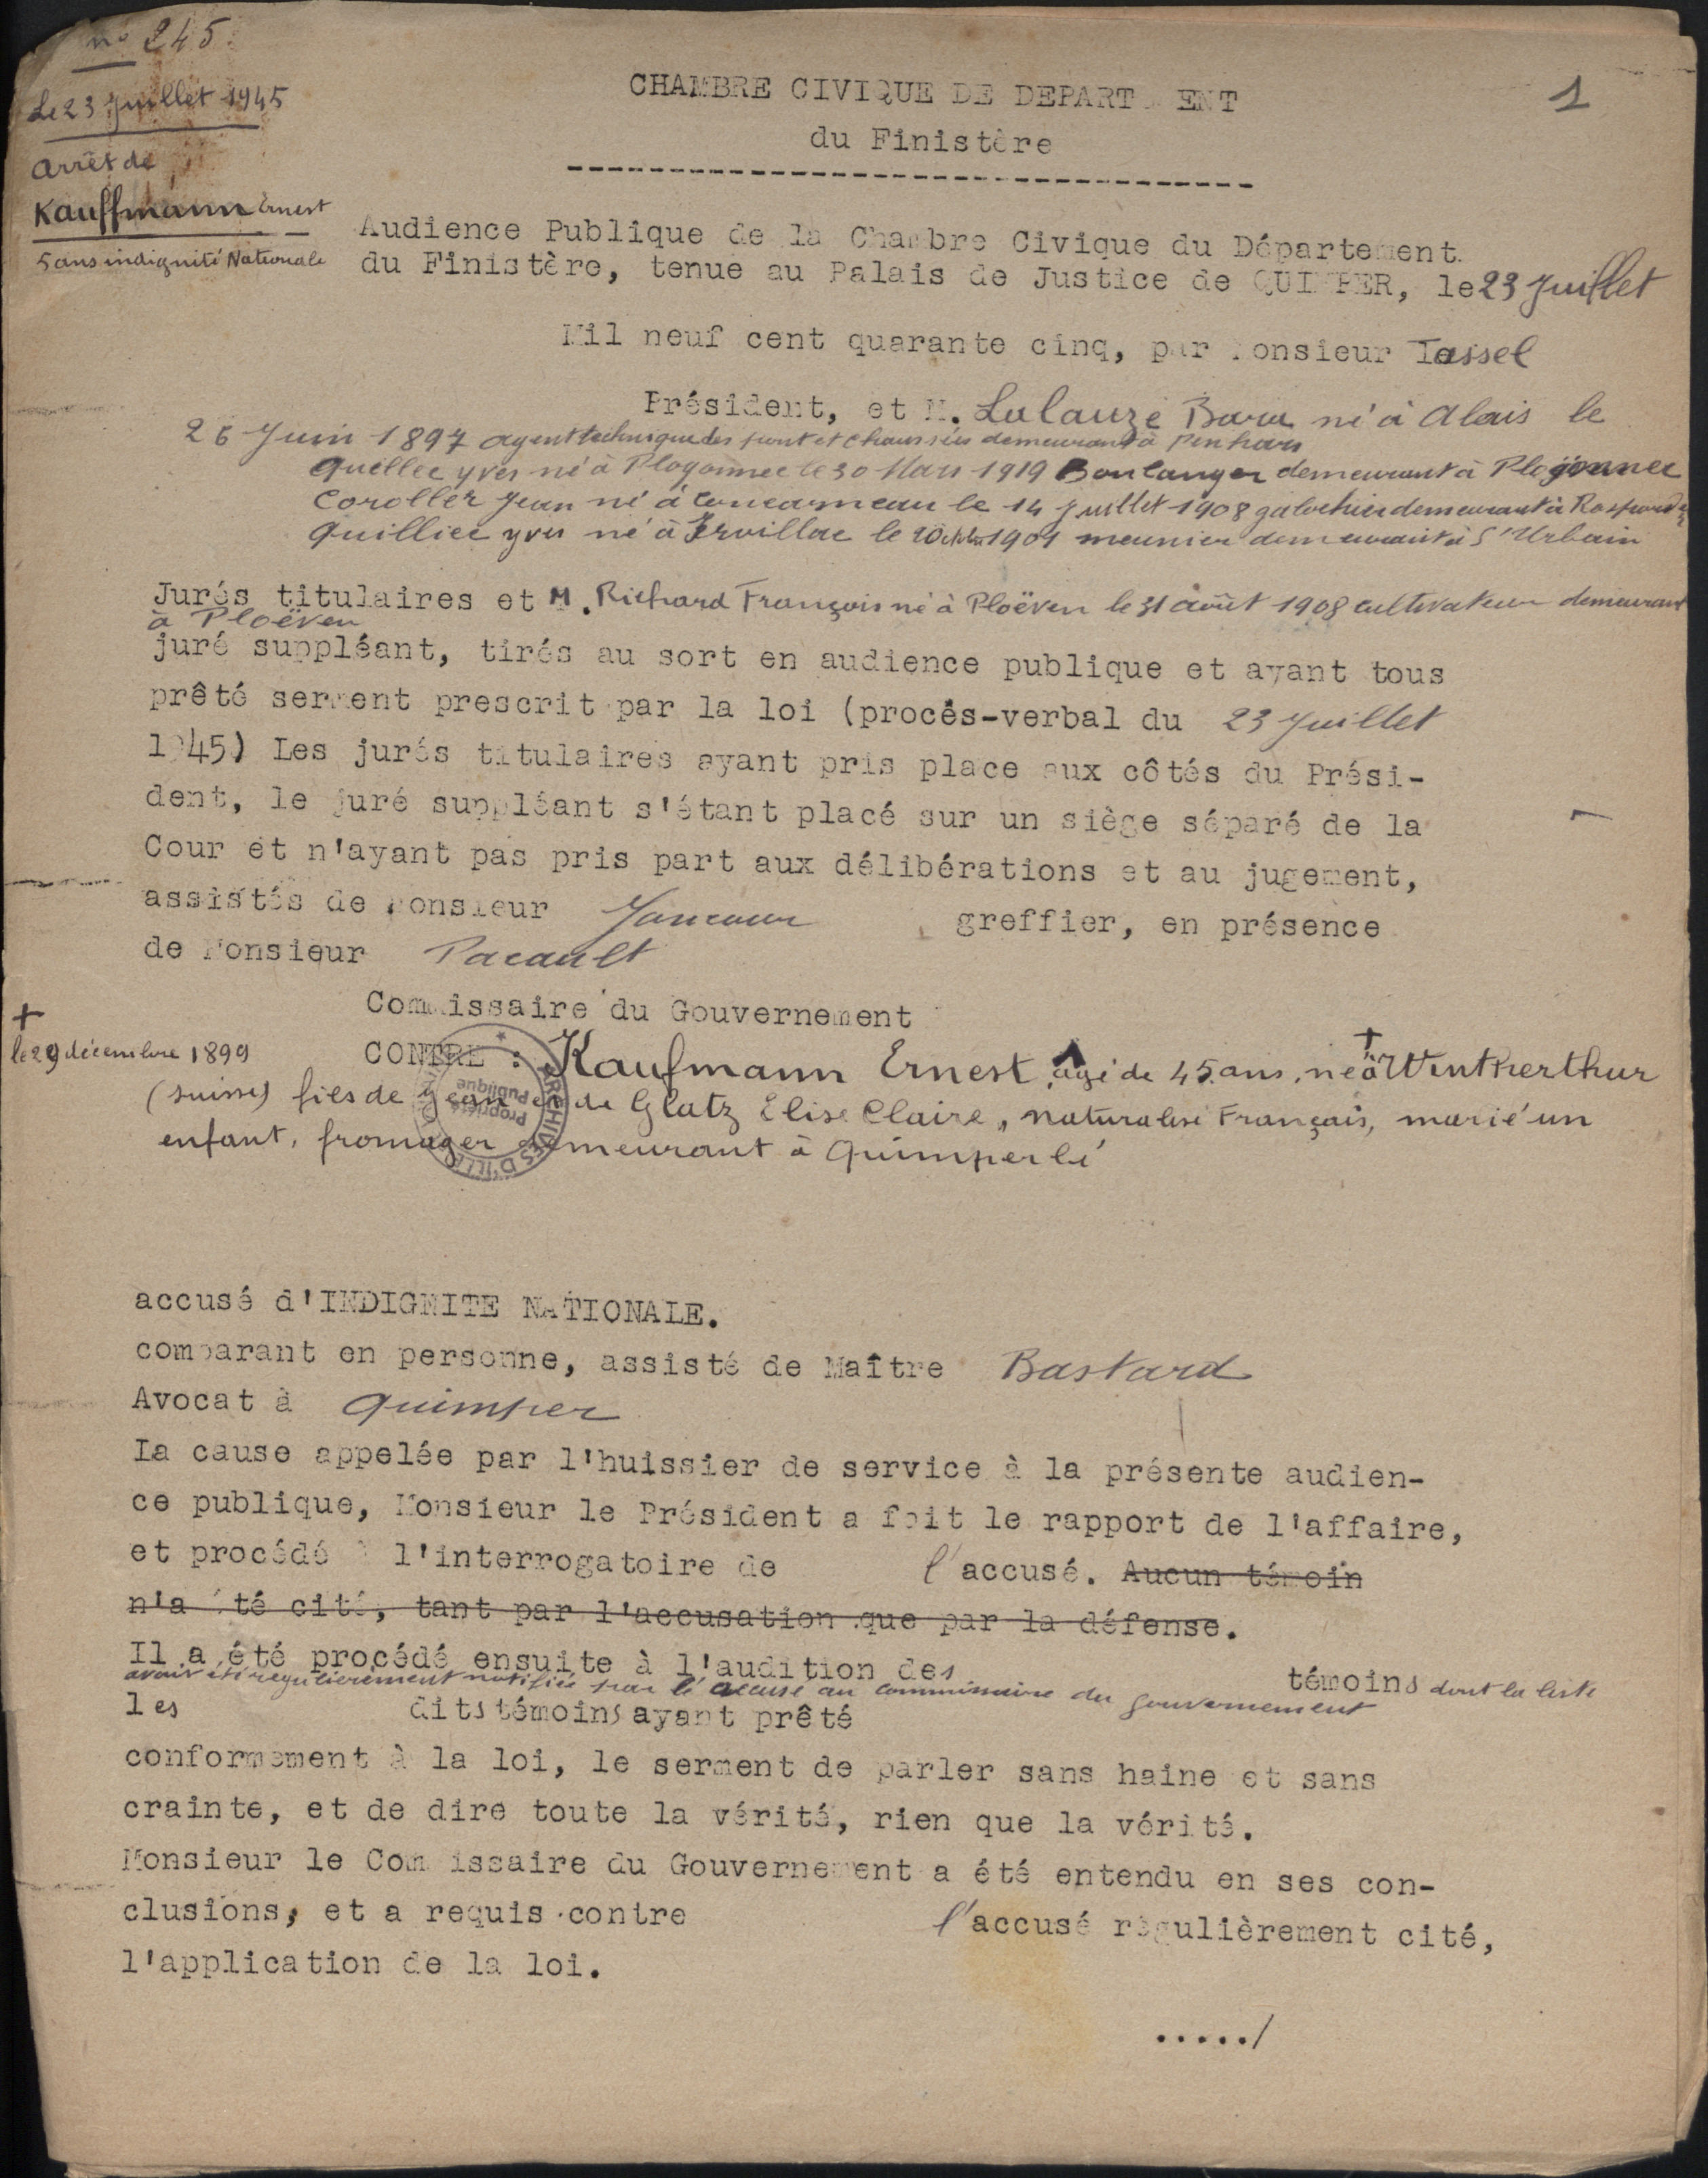 n° 245.
Le 23 Juillet 1945
Arrêt de
Kauffmann Ernest
5 ans indignité Nationale
1
CHAMBRE CIVIQUE DE DEPART ENT
du Finistère
Audience Publique de la Chambre Civique du Département
du Finistère, tenue au Palais de Justice de QUIMPER, le 23 Juillet
Mil neuf cent quarante cinq, par Monsieur Tassel
Président, et M. Lalauze Bara né à Alais le
26 Juin 1897 agent technique des pont et chaussées demeurant à Penhars
Quellec yves né à Plogonnec le 30 Mars 1919 Boulanger demeurant à Plogonnec
Coroller Jean né à Concarneau le 14 Juillet 1908 galochier demeurant à
Quilliec yves né à Irvillac le 10 1901 meunier demeurant à St Urbain
Jurés titulaires et M. Richard François né à Ploëven le 31 août 1908 cultivateur demeurant
à Ploëven
juré suppléant, tirés au sort en audience publique et ayant tous
prêté serment prescrit par la loi (procés-verbal du 23 Juillet
1945) Les jurés titulaires ayant pris place aux côtés du Prési-
dent, le juré suppléant s'étant placé sur un siège séparé de la
Cour et n'ayant pas pris part aux délibérations et au jugement,
assistés de Monsieur Joncour greffier, en présence
de Monsieur Pacault
Commissaire du Gouvernement
+
le 29 décembre 1899
CONTRE : Kaufmann Ernest, âgé de 45 ans, né + à Wintherthur
(suisse) fils de Jean et de Glatz Elise Claire, naturalisé Français, marié un
enfant, fromager demeurant à Quimperlé
ARCHIVES D'ILLE
Propriété
Publique
accusé d'INDIGNITE NATIONALE.
comparant en personne, assisté de Maître Bastard
Avocat à Quimper
La cause appelée par l'huissier de service à la présente audien-
ce publique, Monsieur le Président a fait le rapport de l'affaire,
et procédé à l'interrogatoire de l'accusé. Aucun témoin
n'a été cité, tant par l'accusation que par la défense.
Il a été procédé ensuite à l'audition des témoins dont la liste
avait été regulièrement notifiée par l'accusé au commissaire du gouvernement
les dits témoins ayant prêté
conformément à la loi, le serment de parler sans haine et sans
crainte, et de dire toute la vérité, rien que la vérité.
Monsieur le Commissaire du Gouvernement a été entendu en ses con-
clusions, et a requis contre l'accusé régulièrement cité,
l'application de la loi.
...../